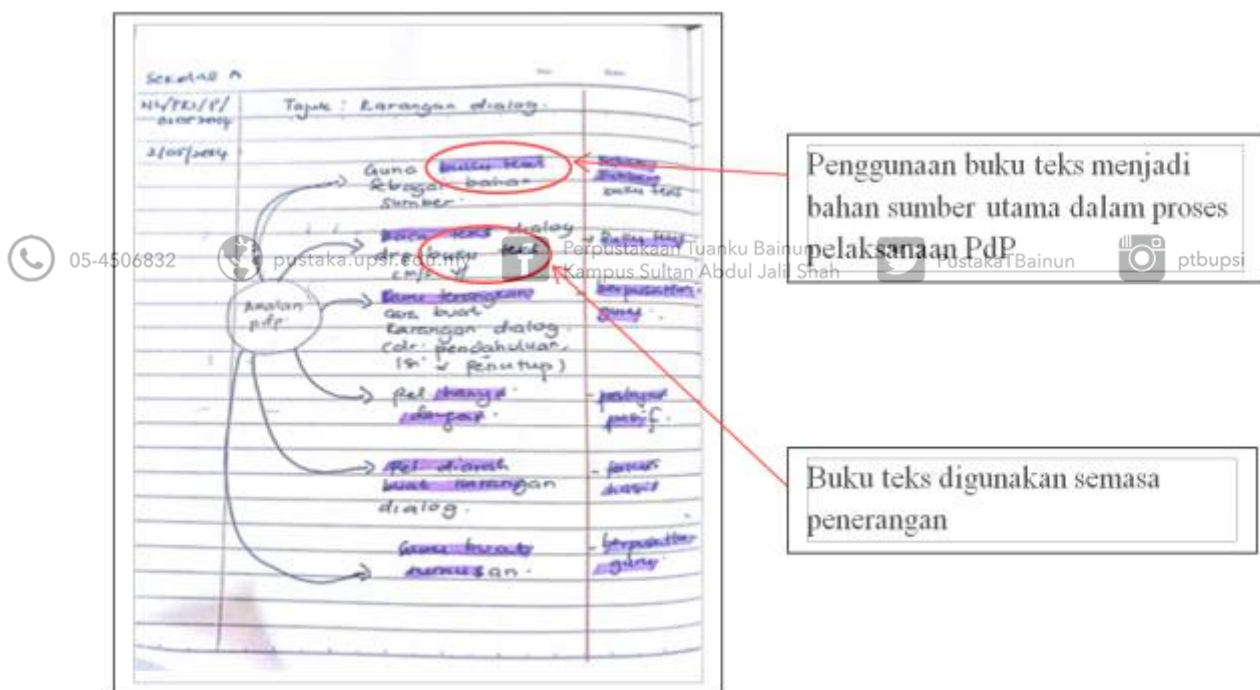 Sekolah A
2/05/2024
Tajuk : Karangan dialog.
Guna buku teks
sebagai bahan
sumber.
bahan
sumber
buku teks
Baca teks dialog
buku teks
teks
Guru terangkan
cara buat
karangan dialog.
(dr. pendahuluan,
isi & penutup)
berpusatkan
guru.
Amalan
pdp
Pel hanya
dengar.
- pelajar
pasif.
Pel diarah
buat karangan
dialog.
- fokus
hasil
Guru buat
rumusan.
- berpusatkan
guru.
Penggunaan buku teks menjadi
bahan sumber utama dalam proses
pelaksanaan PdP
Buku teks digunakan semasa
penerangan
05-4506832
pustaka.upsi.edu.my
Perpustakaan Tuanku Bainun
Kampus Sultan Abdul Jalil Shah
PustakaTBainun
ptbupsi